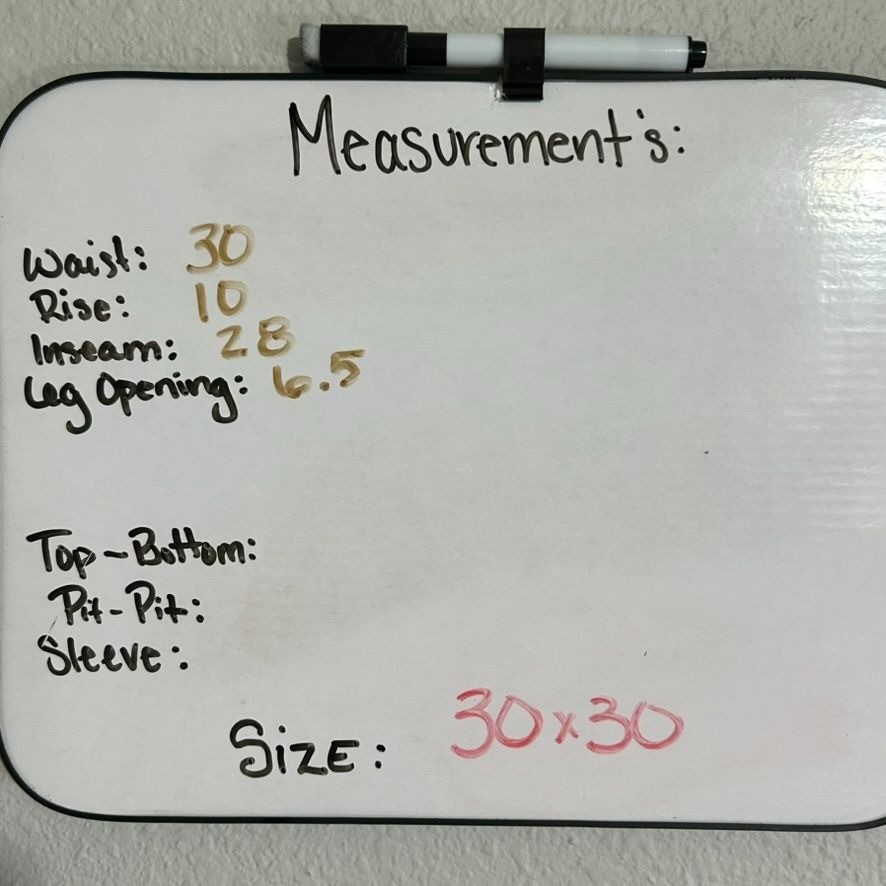 Measurement's:
Waist: 30
Rise: 10
Inseam: 28
Leg Opening: 6.5
Top-Bottom:
Pit-Pit:
Sleeve:
SIZE: 30x30